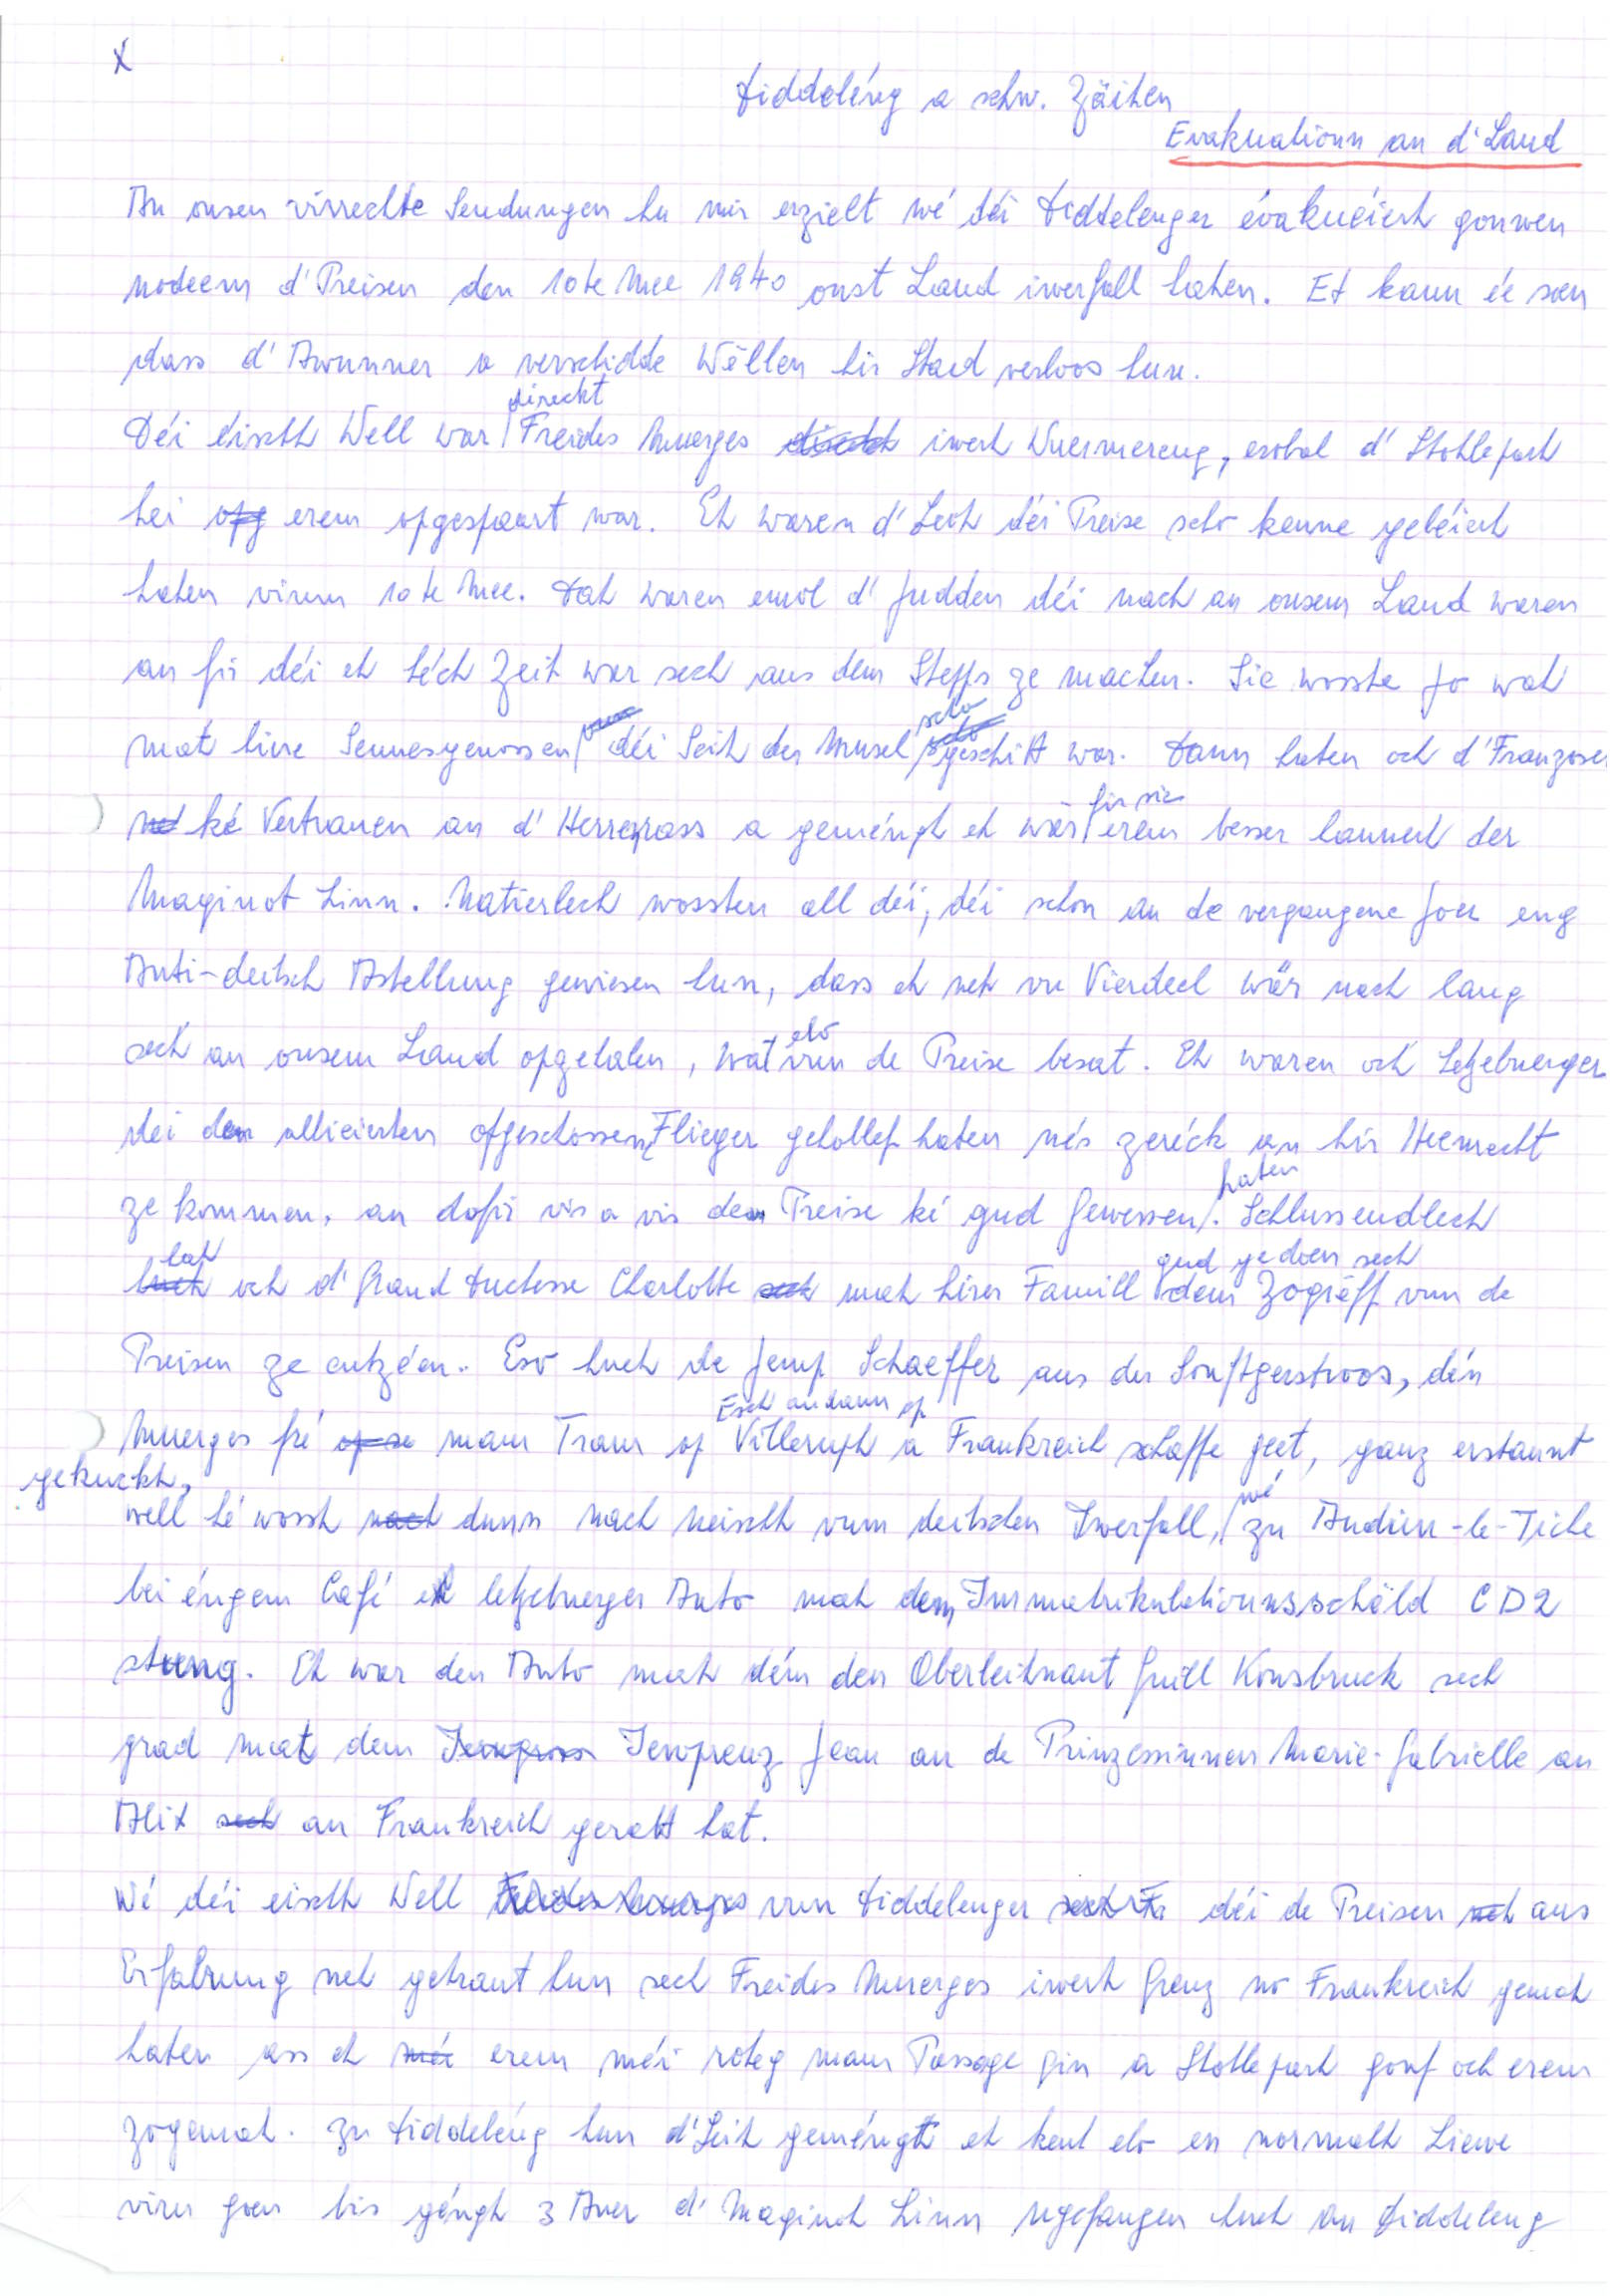 X
Diddeléng a schw. Zäiten
Evakuatioun an d'Land
An onsen virrechte Sendungen hu mir erzielt wé déi Diddelenger évakuéiert gouwen
nodeem d'Preisen den 10te Mee 1940 onst Land iwerfall haten. Et kann ée soen
dass d'Awunner a verschidde Wëllen hir Stad verloos hun.
Déi éischt Well war direkt Freides Muerges iwert Wuermereng, esobal d'Stohlepört
hei erem opgespaart war. Et waren d'Leit déi Preise scho kenne geléiert
haten virum 10te Mee. Dat waren emol d'Judden déi nach an onsem Land waren
an fir déi et héch Zeit war sech aus dem Stepps ze machen. Sie wosste jo wat
mat hire Sennesgenossen déi Seit der Musel scho geschitt war. Dann haten och d'Franzosen
ké Vertrauen an d'Herrerass a geméngt et wär fir sie erem besser hannert der
Maginot Linn. Natierlech wossten all déi, déi schon an de vergangene Joer eng
Anti-deitsch Astellung gewiesen hun, dass et net vu Vierdeel wär nach lang
sech an onsem Land opgehalen, wat elo vun de Preise besat. Et waren och Letzebuerger
déi den alliéierten ofgeschossen Flieger gehollef haten nés zeréck an hir Heemecht
ze kommen, an dofir vis a vis den Preise ké gud Gewessen haten. Schlussendlech
hat och d'Grand Duchesse Charlotte mat hirer Famill gud gedoen sech dem Zogrëff vun de
Preisen ze entzéen. Eso huet de Jemp Schaeffer aus der Souftgerstroos, dén
Muerges fré mam Tram op Esch an dann op Villerupt a Frankreich schaffe geet, ganz erstaunt
gekuckt,
well hé wosst dunn nach neischt vum deitschen Iwerfall, wé zu Audun-le-Tiche
bei éngem Café et letzebuerger Auto mat dem Immatrikulatiounsschëld CD2
stung. Et war den Auto mat dém den Oberleitnant Guill Konsbruck sech
grad mat dem Ierwpreuz Jean an de Prinzessinnen Marie-Gabrielle an
Alix an Frankreich gerett hat.
Wé déi eischt Well vun Diddelenger déi de Preisen aus
Erfahrung net getraut hun sech Freides Muerges iwert Grenz no Frankreich gemat
haten ass et erem méi roteg mam Passage gin a Stollepart gouf och erem
zogemat. Zu Diddeléng hun d'Leit geméngt et kent elo en normalt Liewe
viru goen bis géngt 3 Auer d'Maginot Linn ugefangen huet an Diddeleng